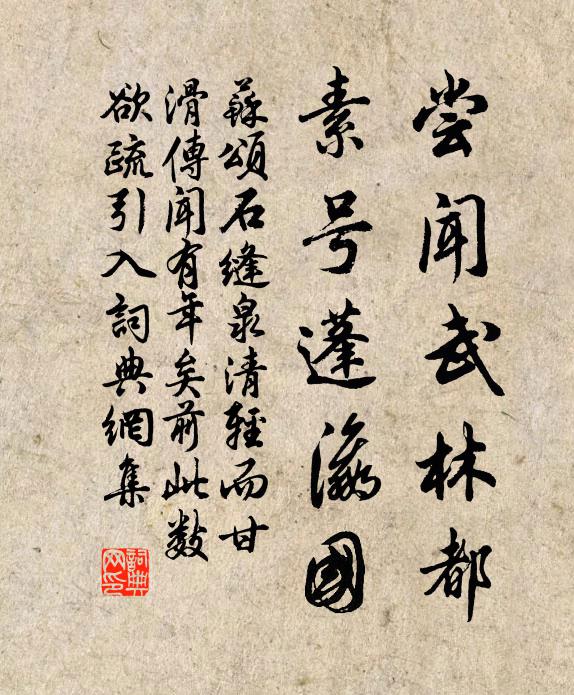 尝闻武林都
素号蓬瀛国
蘇頌石縫泉清輕而甘
滑傳闻有年矣前此数
欲疏引入詞典網集
詞典网印